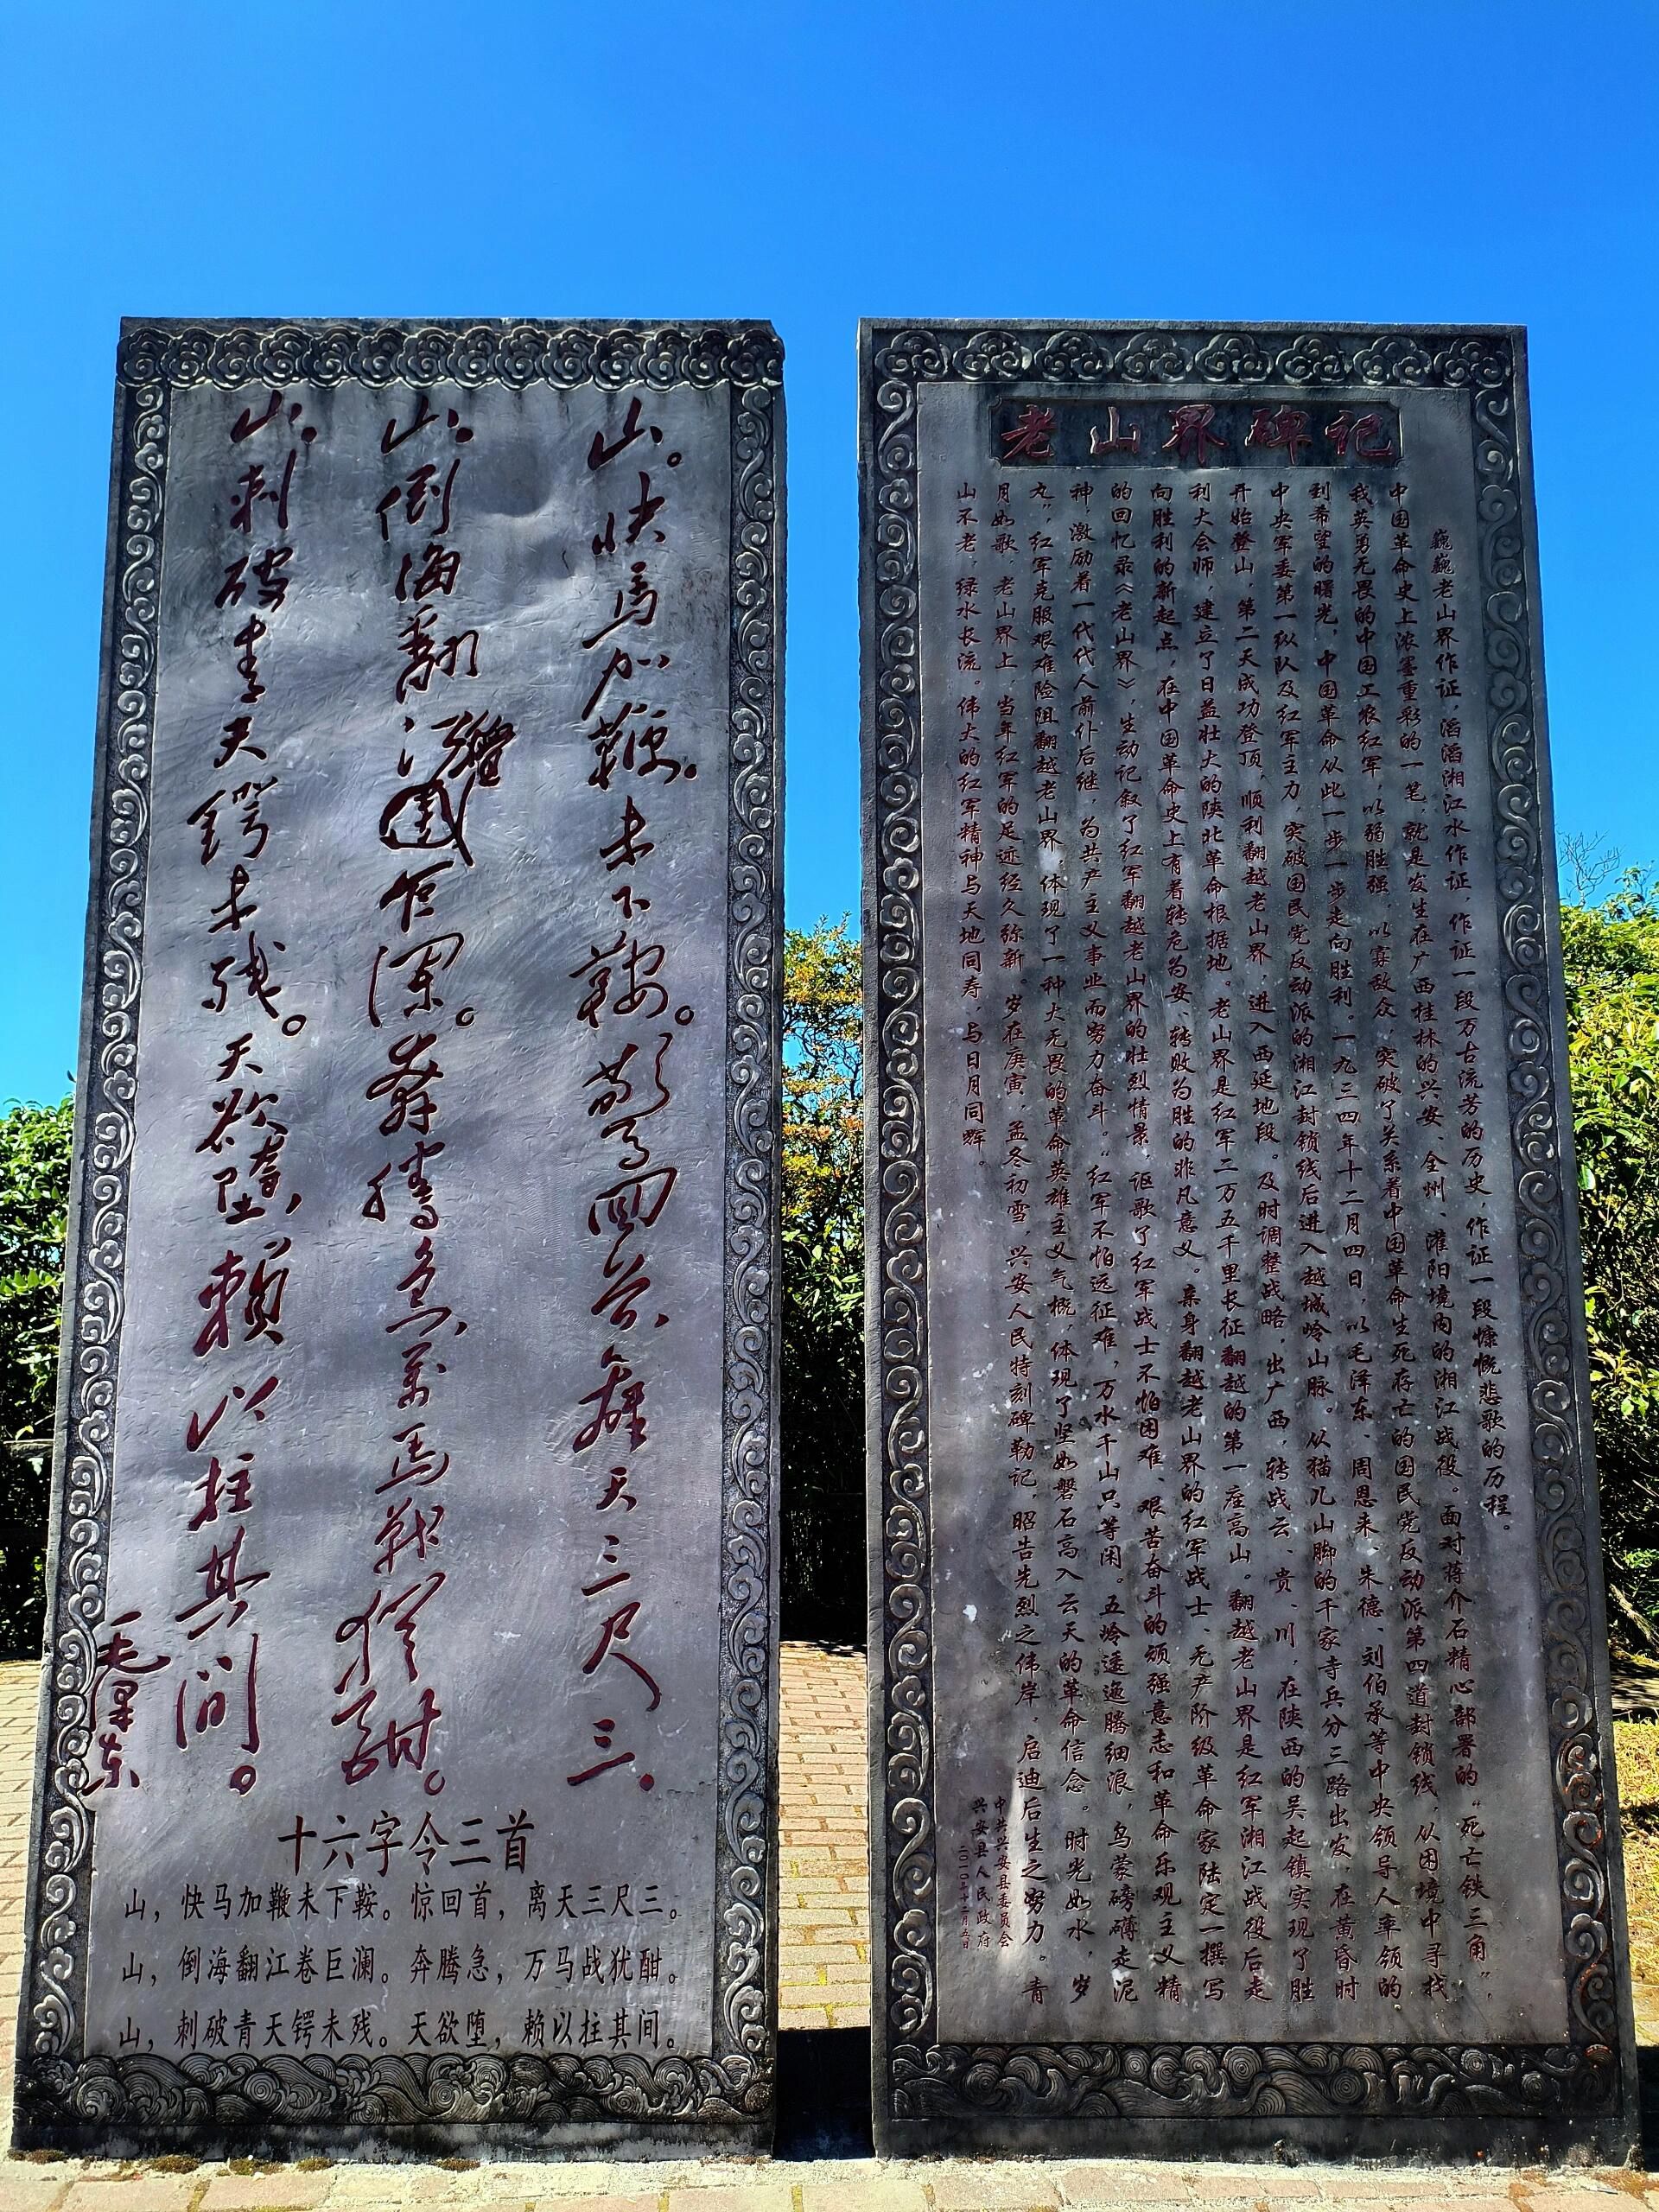 山。快马加鞭未下鞍。惊回首，离天三尺三。
山。倒海翻江卷巨澜。奔腾急，万马战犹酣。
山。刺破青天锷未残。天欲堕，赖以拄其间。
毛泽东
十六字令三首
山，快马加鞭未下鞍。惊回首，离天三尺三。
山，倒海翻江卷巨澜。奔腾急，万马战犹酣。
山，刺破青天锷未残。天欲堕，赖以拄其间。
老山界碑记
巍巍老山界作证，滔滔湘江水作证，作证一段万古流芳的历史，作证一段慷慨悲歌的历程。
中国革命史上浓墨重彩的一笔，就是发生在广西桂林的兴安、全州、灌阳境内的湘江战役。面对蒋介石精心部署的“死亡铁三角”，
我英勇无畏的中国工农红军，以弱胜强，以寡敌众，突破了关系着中国革命生死存亡的国民党反动派第四道封锁线，从困境中寻找
到希望的曙光，中国革命从此一步一步走向胜利。一九三四年十二月四日，以毛泽东、周恩来、朱德、刘伯承等中央领导人率领的
中央军委第一纵队及红军主力，突破国民党反动派的湘江封锁线后进入越城岭山脉。从猫儿山脚的千家寺兵分三路出发，在黄昏时
开始登山，第二天成功登顶，顺利翻越老山界，进入西延地段。及时调整战略，出广西，转战云、贵、川，在陕西的吴起镇实现了胜
利大会师，建立了日益壮大的陕北革命根据地。老山界是红军二万五千里长征翻越的第一座高山。翻越老山界是红军湘江战役后走
向胜利的新起点，在中国革命史上有着转危为安、转败为胜的非凡意义。亲身翻越老山界的红军战士、无产阶级革命家陆定一撰写
的回忆录《老山界》，生动记叙了红军翻越老山界的壮烈情景，讴歌了红军战士不怕困难、艰苦奋斗的顽强意志和革命乐观主义精
神，激励着一代代人前仆后继，为共产主义事业而努力奋斗。“红军不怕远征难，万水千山只等闲。五岭逶迤腾细浪，乌蒙磅礴走泥
丸”，红军克服艰难险阻翻越老山界，体现了一种大无畏的革命英雄主义气概，体现了坚如磐石高入云天的革命信念。时光如水，岁
月如歌，老山界上，当年红军的足迹经久弥新。岁在庚寅，孟冬初雪，兴安人民特刻碑勒记，昭告先烈之伟岸，启迪后生之努力。青
山不老，绿水长流。伟大的红军精神与天地同寿，与日月同辉。
中共兴安县委员会
兴安县人民政府
二〇一〇年十二月五日